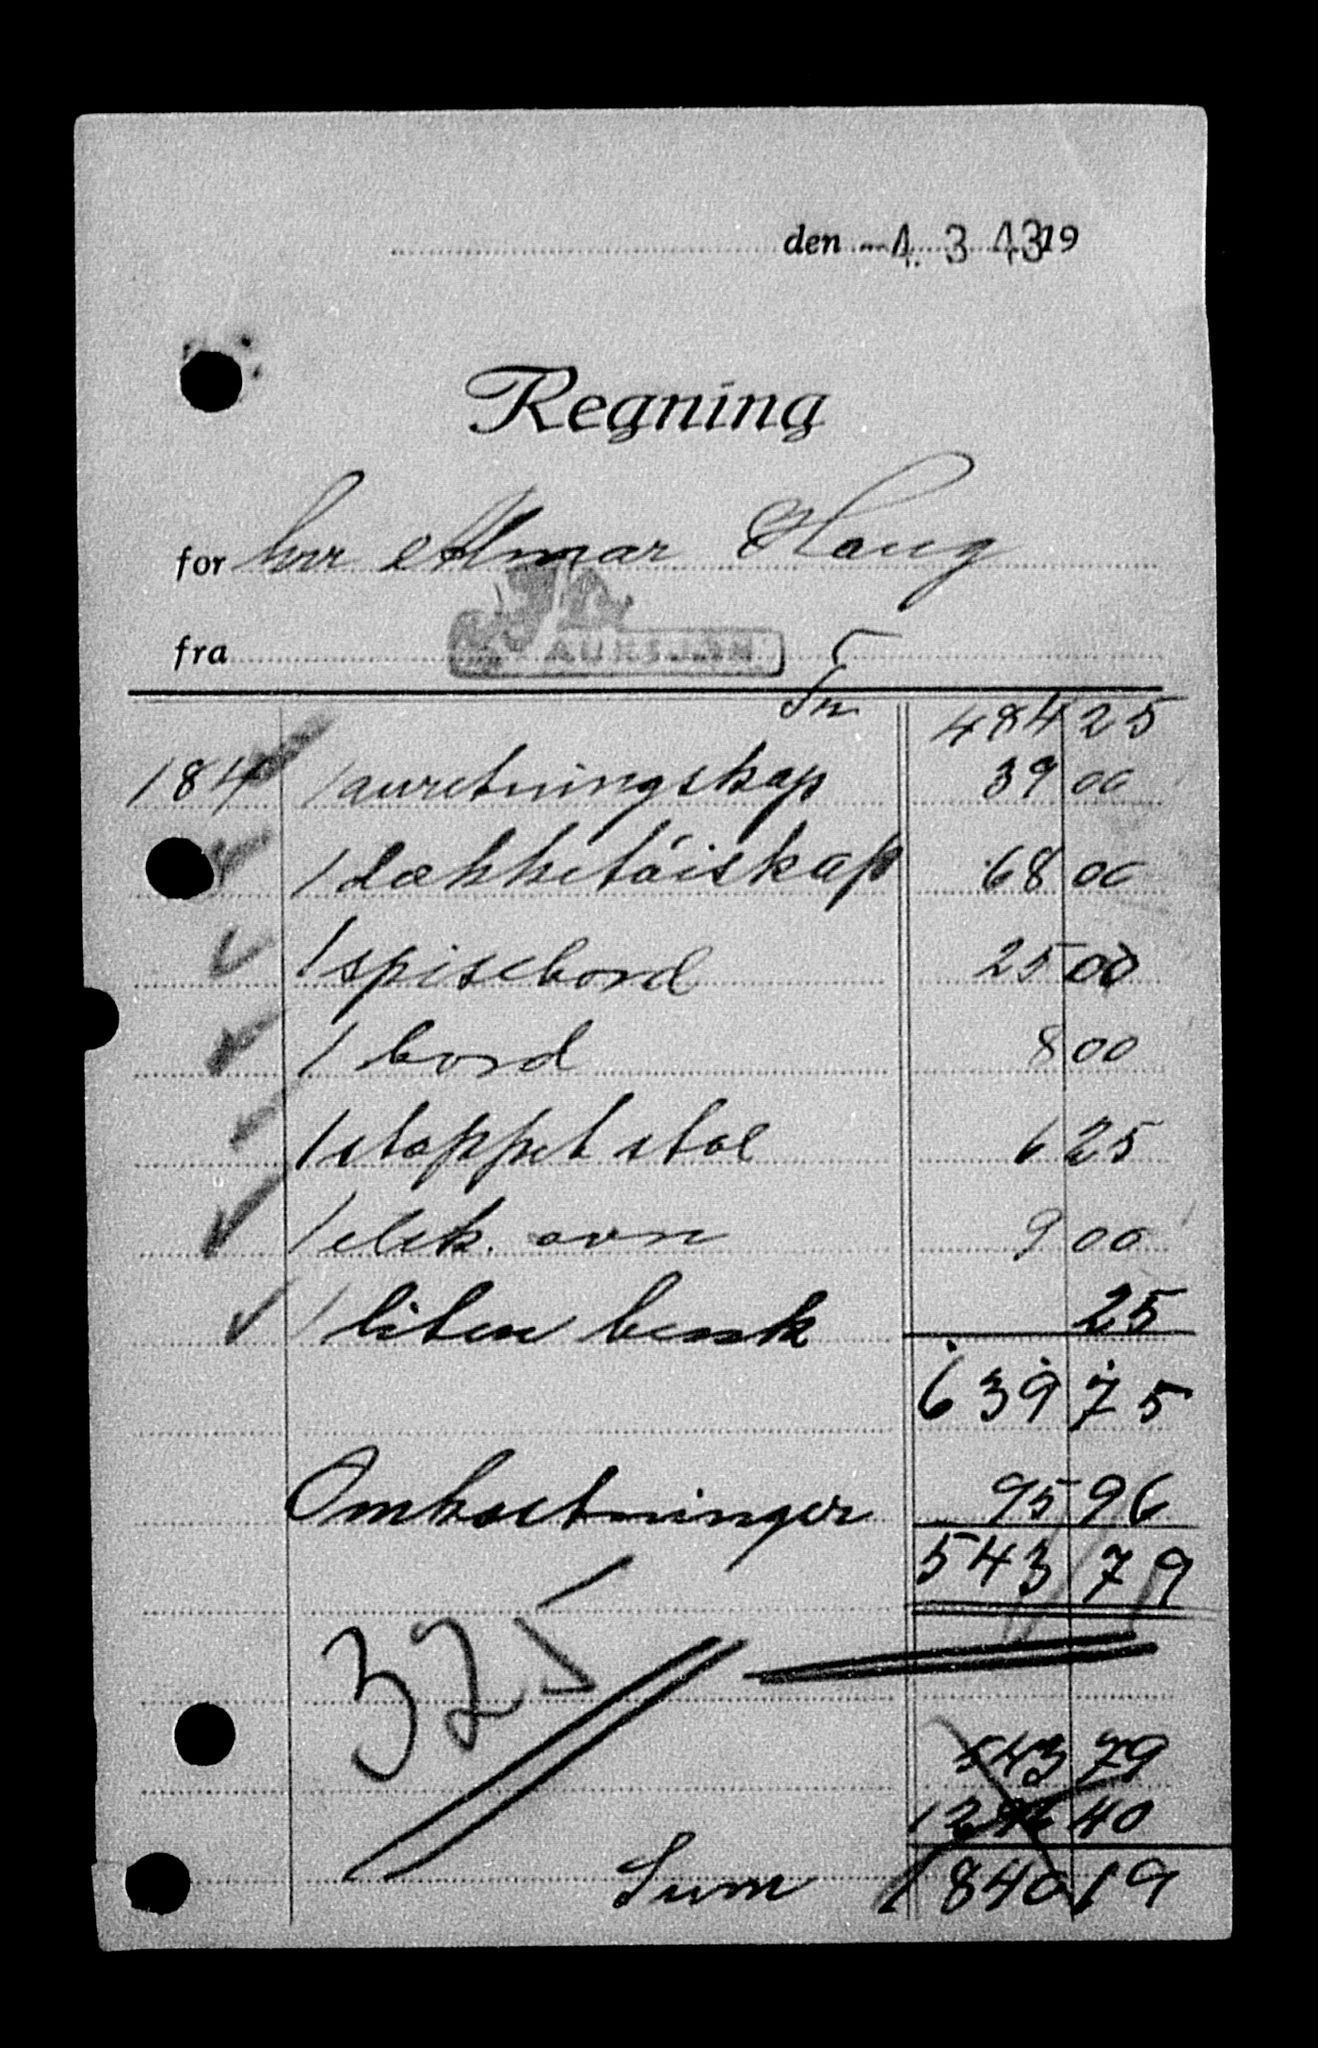 den 4. 3 43 19
Regning
for herr Almar Haug
fra AURSJØN
484 25
184 1 anretningskap 39 00
1 Dækketøiskap 68 00
1 spisebord 25 00
1 bord 8 00
1 stoppet stol 6 25
1 elek. ovn 9 00
1 liten benk 25
639 75
Omkostninger 95 96
543 79
325
543 79
40
Sum 1840 19